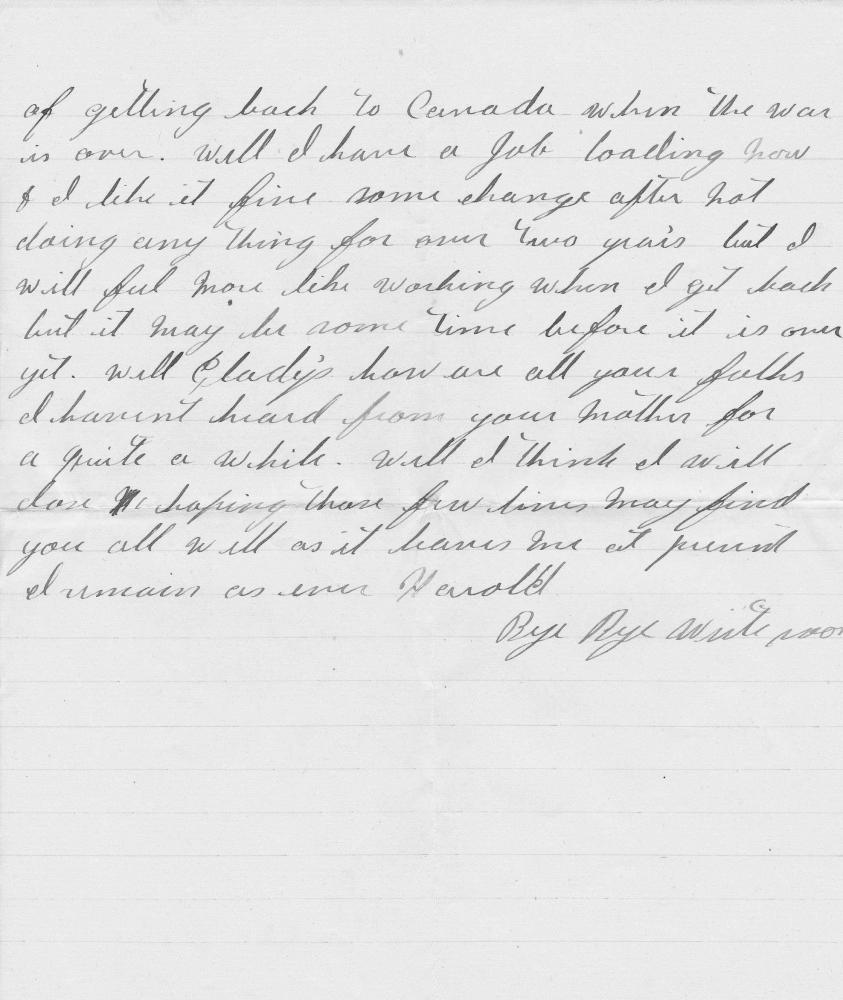 of getting back to Canada when the war
is over. Well I have a Job loading now
& I like it fine some change after not
doing any thing for over two years but I
will feel more like working when I get back
but it may be some time before it is over
yet. Well Gladys how are all your folks
I havent heard from your Mother for
a quite a while. Well I think I will
close hoping those few lines may find
you all well as it leaves me at present
I remain as ever Harold
Bye Bye Write soon